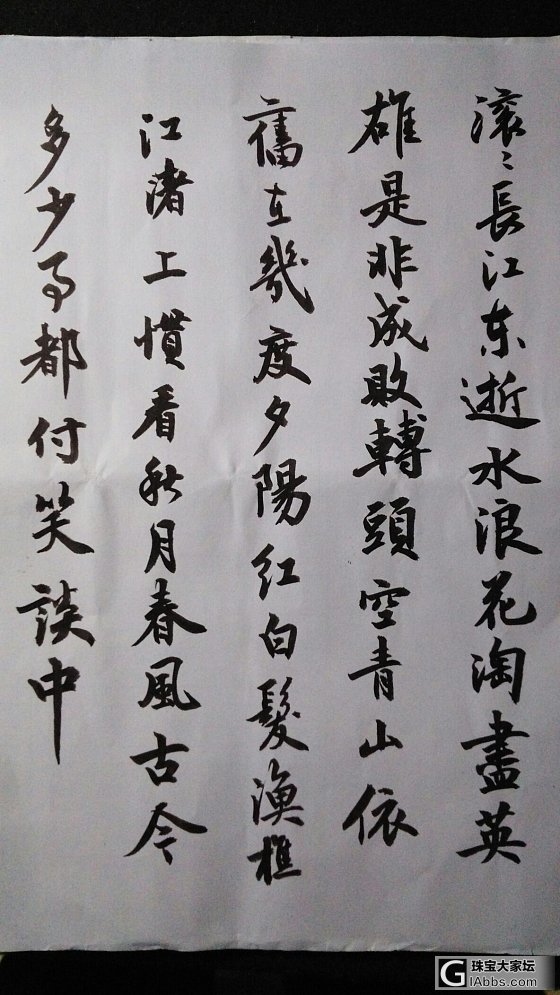 滚〻長江东逝水浪花淘盡英
雄是非成敗轉頭空青山依
舊在幾度夕陽红白髮漁樵
江渚上慣看秋月春風古今
多少事都付笑談中
珠宝大家坛
GIAbbs.com